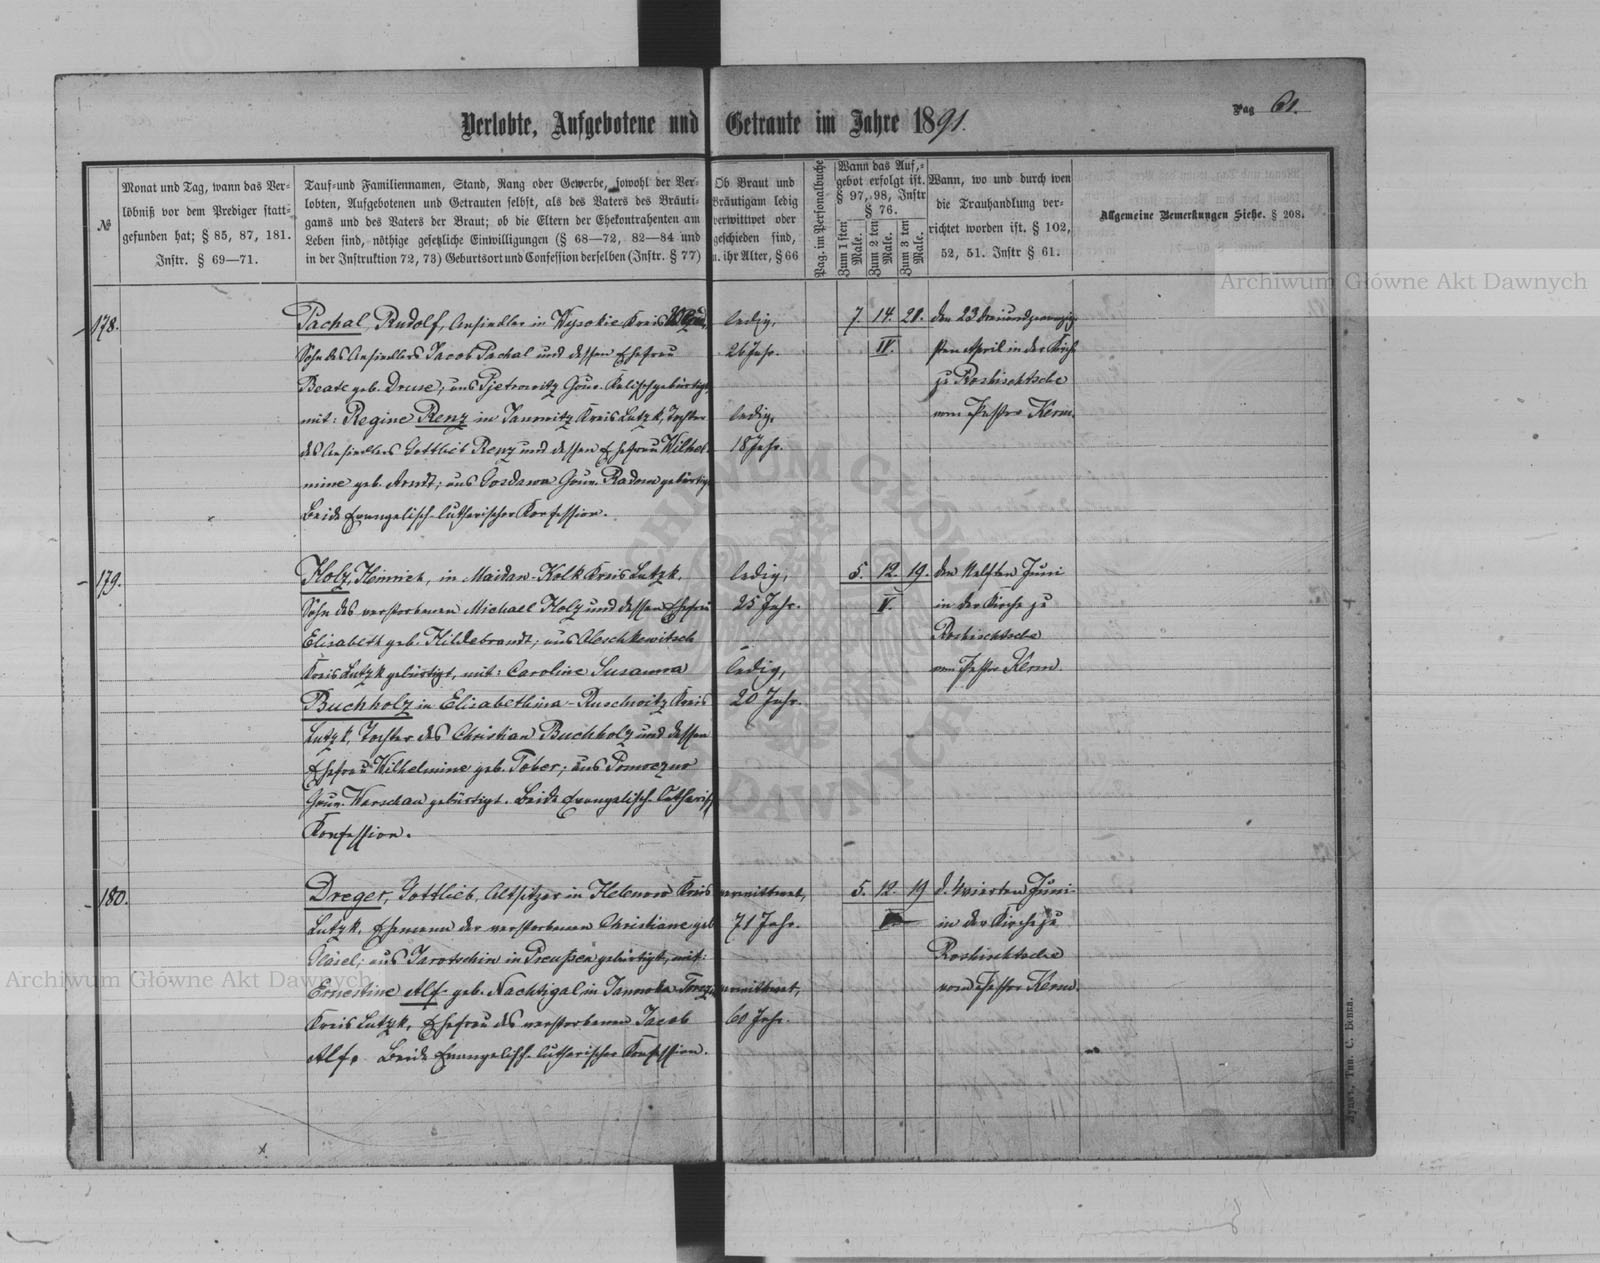 Pag 61.
Verlobte, Aufgebotene und Getraute im Jahre 1891.
№
Monat und Tag, wann das Ver-
löbniß vor dem Prediger statt-
gefunden hat; § 85, 87, 181.
Instr. § 69—71.
Tauf- und Familiennamen, Stand, Rang oder Gewerbe, sowohl der Ver-
lobten, Aufgebotenen und Getrauten selbst, als des Vaters des Bräuti-
gams und des Vaters der Braut; ob die Eltern der Ehekontrahenten am
Leben sind, nöthige gesetzliche Einwilligungen (§ 68—72, 82—84 und
in der Instruktion 72, 73) Geburtsort und Confession derselben (Instr. § 77)
Ob Braut und
Bräutigam ledig
verwittwet oder
geschieden sind,
u. ihr Alter, § 66
Pag. im Personalbuche
Wann das Auf,-
gebot erfolgt ist.
§ 97, 98, Instr
§ 76.
Zum 1 sten Male.
Zum 2 ten Male.
Zum 3 ten Male.
Wann, wo und durch wen
die Trauhandlung ver-
richtet worden ist. § 102,
52, 51. Instr § 61.
Allgemeine Bemerkungen Siehe. § 208.
178.
Pachal, Rudolf, Ansiedler in Wysokie Kreis
Sohn des Ansiedlers Jacob Pachal und dessen Ehefrau
Beate geb. Druse; aus Pjetrowitz Gouv. Kalisch gebürtigt,
mit: Regine Renz in Janowitz Kreis Lutzk, Tochter
des Ansiedlers Gottlieb Renz und dessen Ehefrau Wilhel-
mine geb. Arndt; aus Gosdawa Gouv. Radom gebürtigt
Beide Evangelisch-lutherischer Konfession.
ledig,
26 Jahr.
ledig,
18 Jahr.
7. 14. 21.
IV.
den 23 dreiundzwanzig-
sten April in der Kirche
zu Roshischtsche
vom Pastor Kerm.
179.
Holz, Heinrich, in Maidan-Kolk Kreis Lutzk.
Sohn des verstorbenen Michael Holz und dessen Ehefrau
Elisabeth geb. Hildebrandt; aus Oleschkewitsch
Kreis Lutzk gebürtigt, mit: Caroline Susanna
Buchholz in Elisabethina-Ruschwitz Kreis
Lutzk, Tochter des Christian Buchholz und dessen
Ehefrau Wilhelmine geb. Tober; aus
Gouv. Warschau gebürtigt. Beide Evangelisch-lutherisch
Konfession.
ledig,
25 Jahr.
ledig,
20 Jahr.
5. 12. 19.
V.
den elften Juni
in der Kirche zu
Roshischtsche
vom Pastor Kerm.
180.
Dreger, Gottlieb, Altsitzer in Helenow Kreis
Lutzk, Ehemann der verstorbenen Christiane geb
Gläsel; aus Jarotschin in Preußen gebürtigt, mit:
Ernestine Alf geb. Nachtigal in Janowka
Kreis Lutzk, Ehefrau des verstorbenen Jacob
Alf. Beide Evangelisch-lutherischer Konfession.
verwittwet,
71 Jahr.
verwittwet,
60 Jahr.
5. 12 19
d. 4 vierten Juni
in der Kirche zu
Roshischtsche
vom Pastor Kerm.
Archiwum Główne Akt Dawnych
Archiwum Główne Akt Dawnych